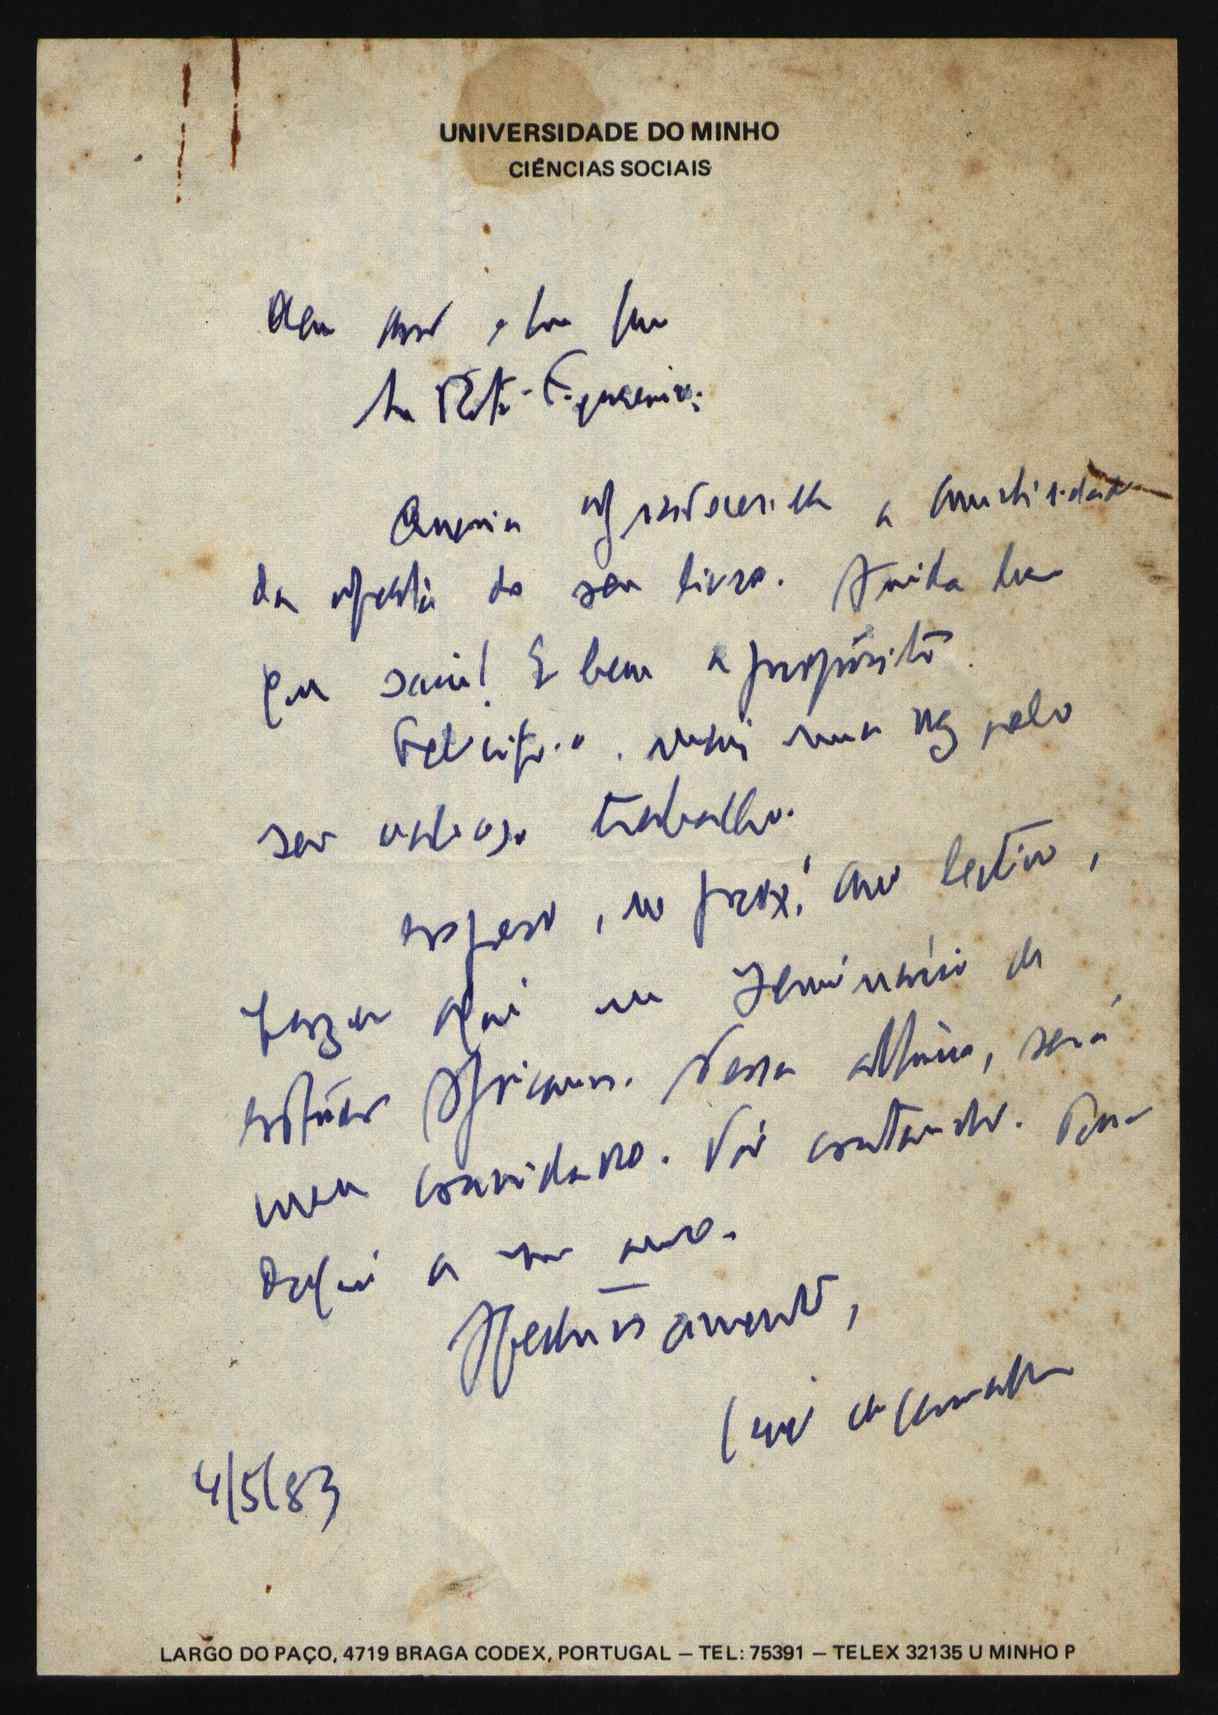 UNIVERSIDADE DO MINHO
CIÊNCIAS SOCIAIS
Meu caro e bom
Queria agradecer-lhe a amabilidade
da oferta do seu livro. Ainda bem
que saiu! E bem a propósito.
Felicito-o mais uma vez pelo
seu valioso trabalho.
Espero, no próx. ano lectivo,
fazer aqui um Seminário de
estudos Africanos. Nessa altura, será
meu convidado. Vá contando. Para
daqui a um ano.
Afectuosamente,
4/5/83
LARGO DO PAÇO, 4719 BRAGA CODEX, PORTUGAL – TEL: 75391 – TELEX 32135 U MINHO P